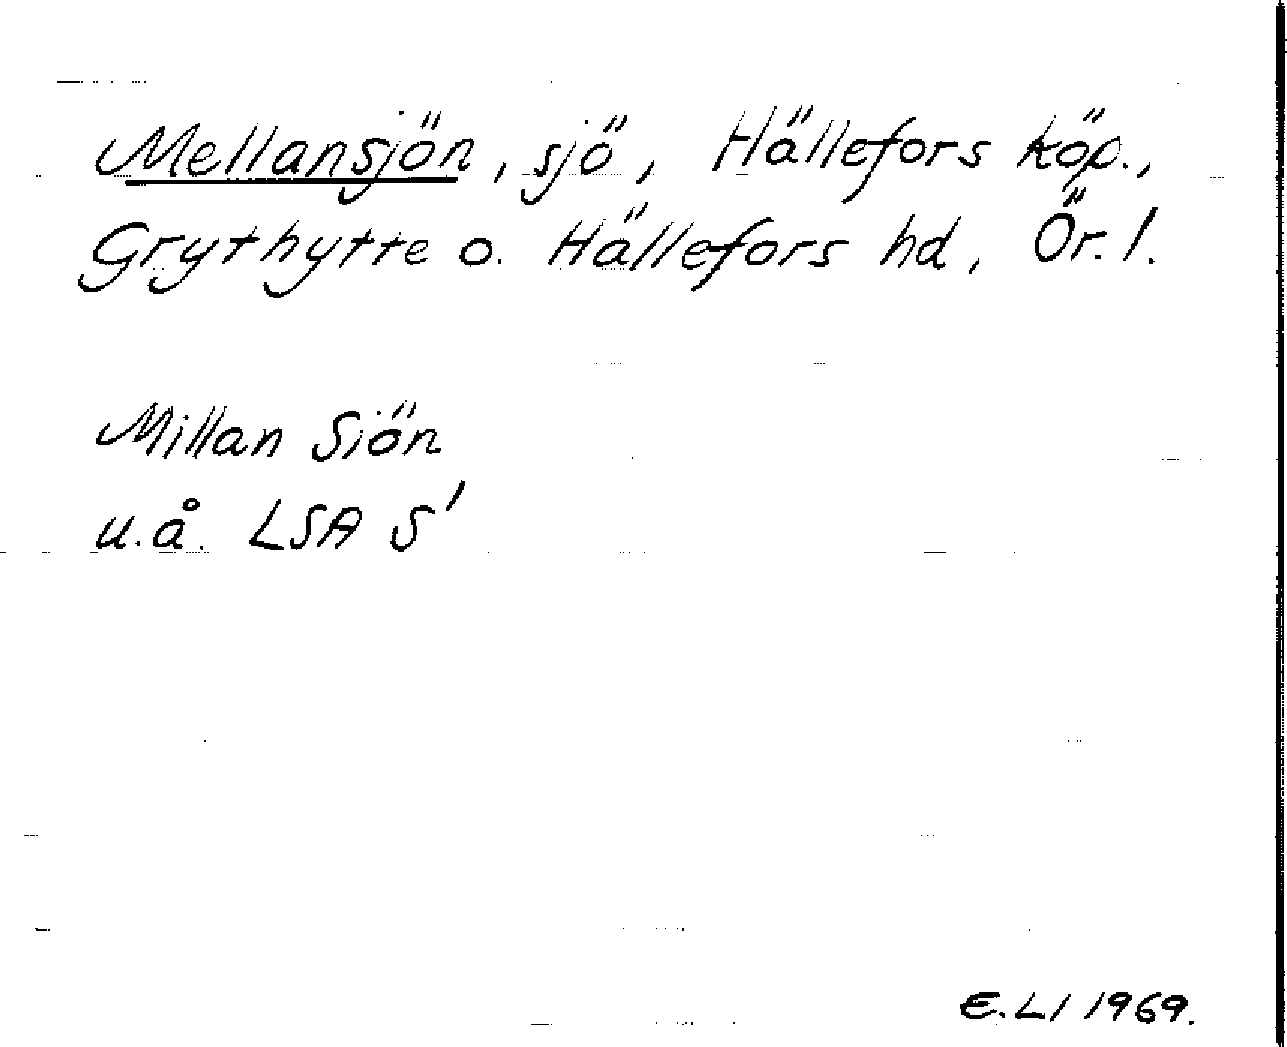 Mellansjön, sjö, Hällefors köp.,
Grythytte o. Hällefors hd, Ör. l.
Millan Siön
u.å. LSA S'
E.LI 1969.